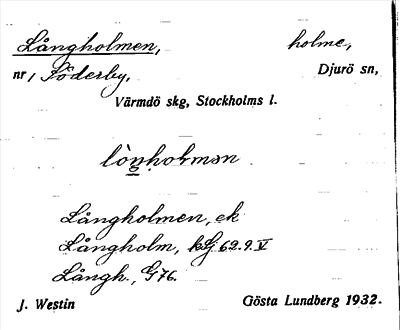 Långholmen, holme,
nr, Söderby, Djurö sn,
Värmdö skg, Stockholms l.
lòŋhoḷmən
Långholmen, ek
Långholm, kG 62.9.V
Långh., G76.
J. Westin Gösta Lundberg 1932.